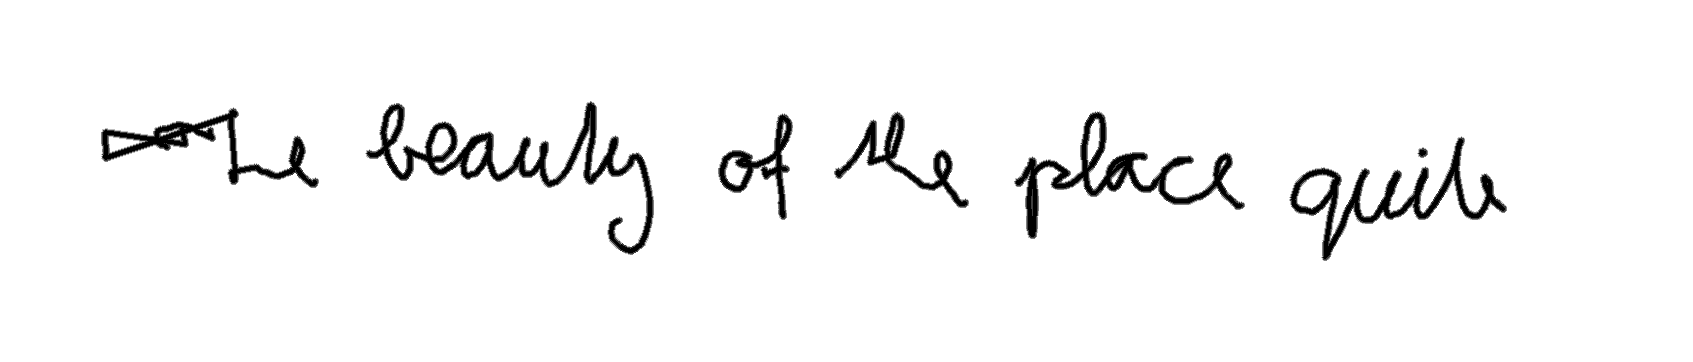 The beauty of the place quite